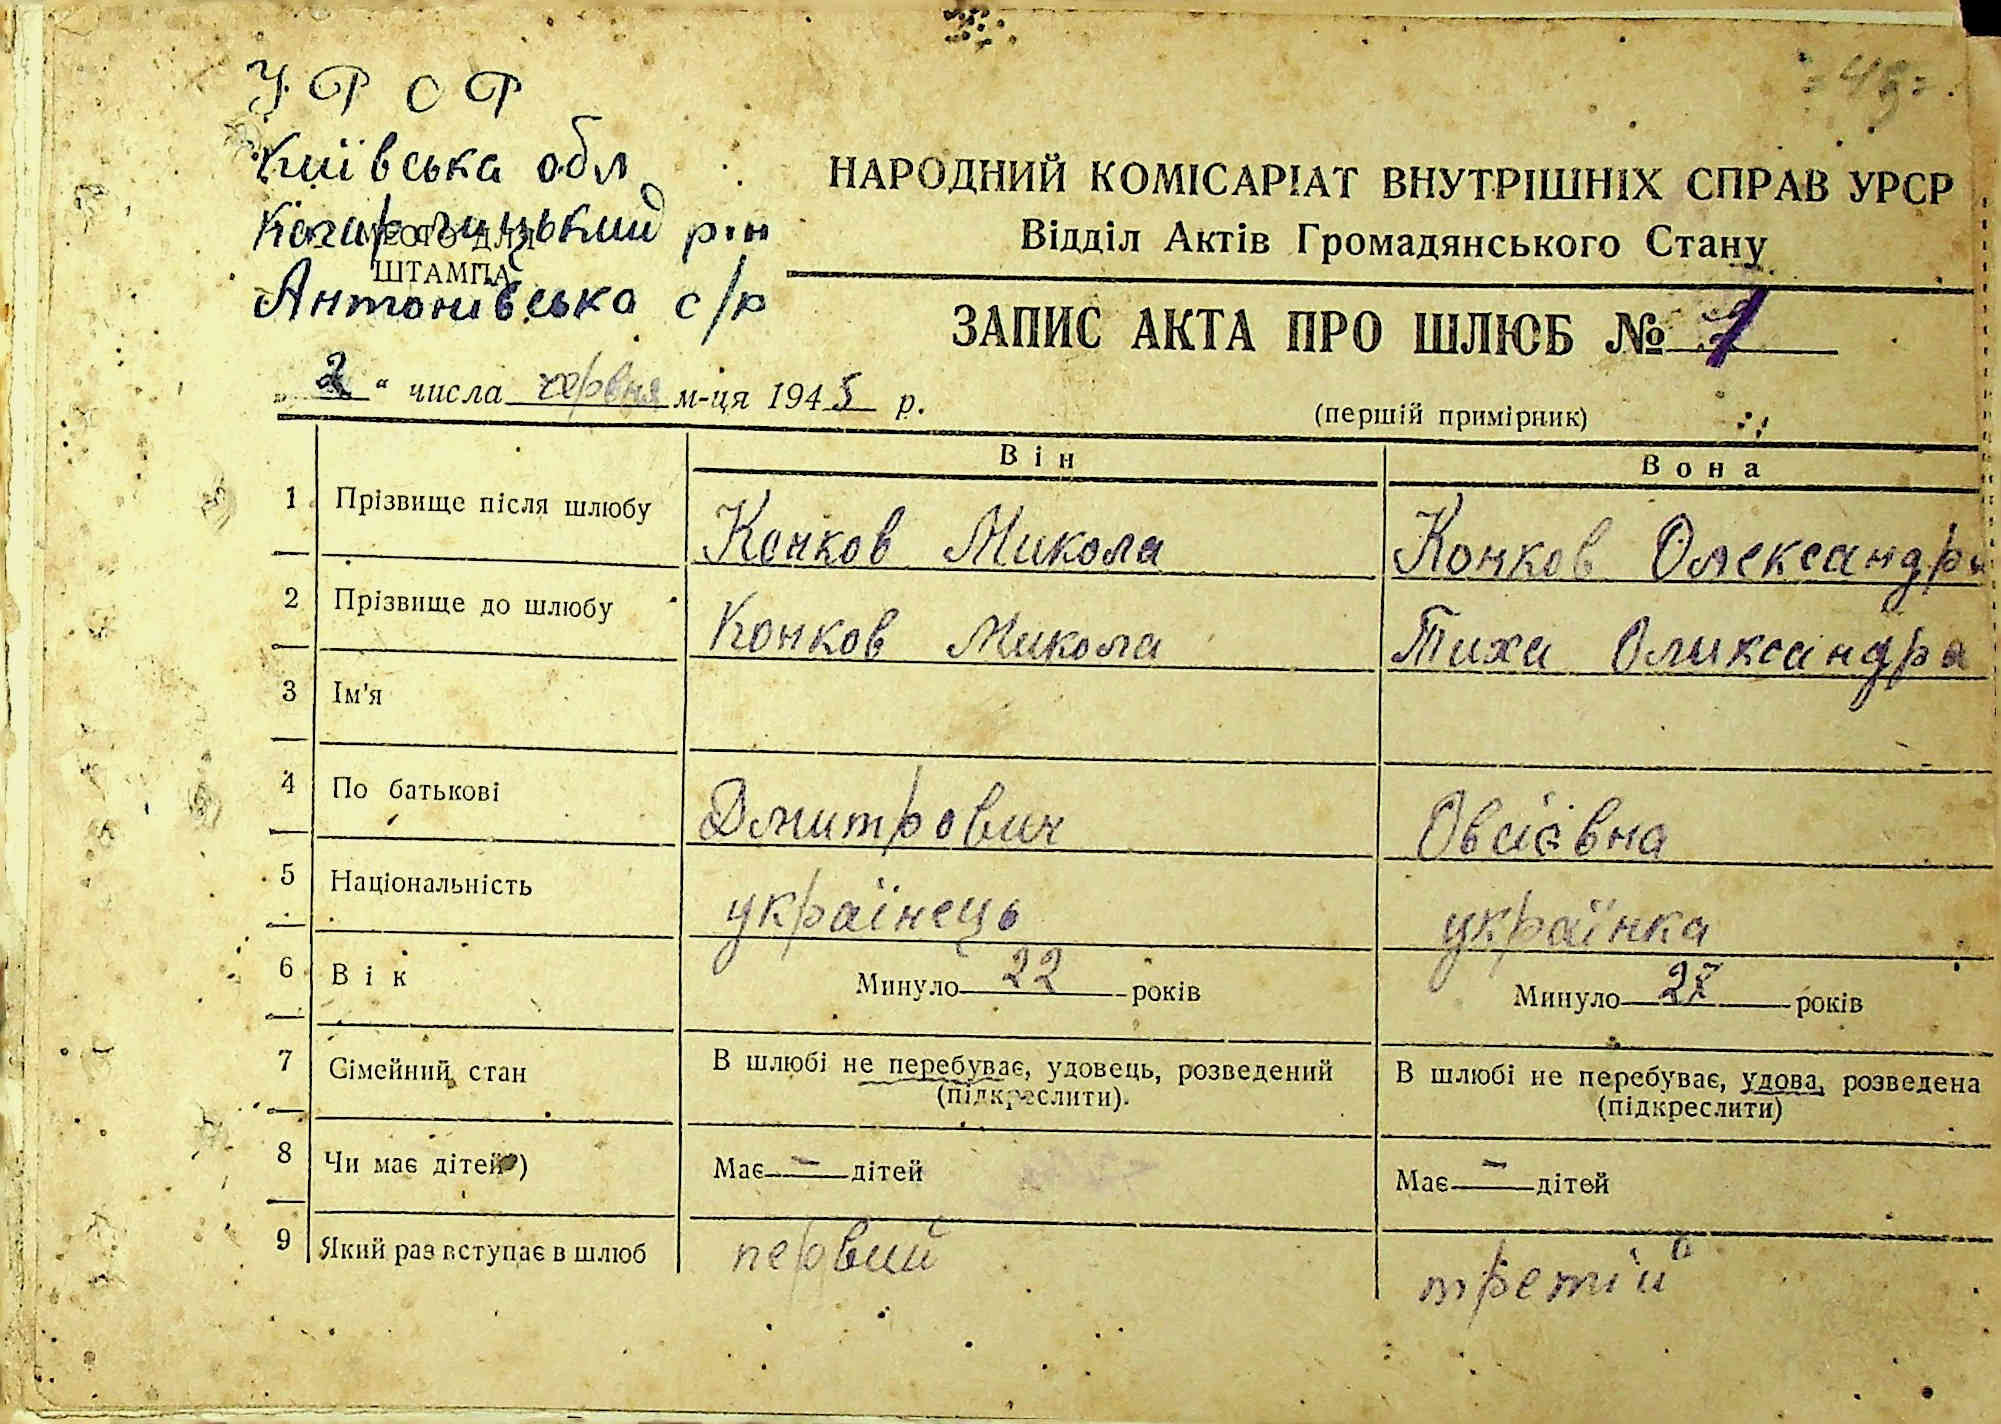 - 49 -
УРСР
Київська обл
Кагарлицький р-н
МІСЦЕ ДЛЯ
ШТАМПА
Антонівська с/р
НАРОДНИЙ КОМІСАРІАТ ВНУТРІШНІХ СПРАВ УРСР
Відділ Актів Громадянського Стану
ЗАПИС АКТА ПРО ШЛЮБ №
„ 2 “ числа червня м-ця 1945 р.
(першій примірник)
Він Вона
1 Прізвище після шлюбу Конков Микола Конков Олександра
2 Прізвище до шлюбу Конков Микола Тиха Оликсандра
3 Ім'я
4 По батькові Дмитрович Овсієвна
5 Національність українець українка
6 Вік Минуло 22 років Минуло років
7 Сімейний стан В шлюбі не перебуває, удовець, розведений В шлюбі не перебуває, удова, розведена
(підкреслити). (підкреслити)
8 Чи має дітей) Має — дітей Має — дітей
9 Який раз вступає в шлюб первий третій